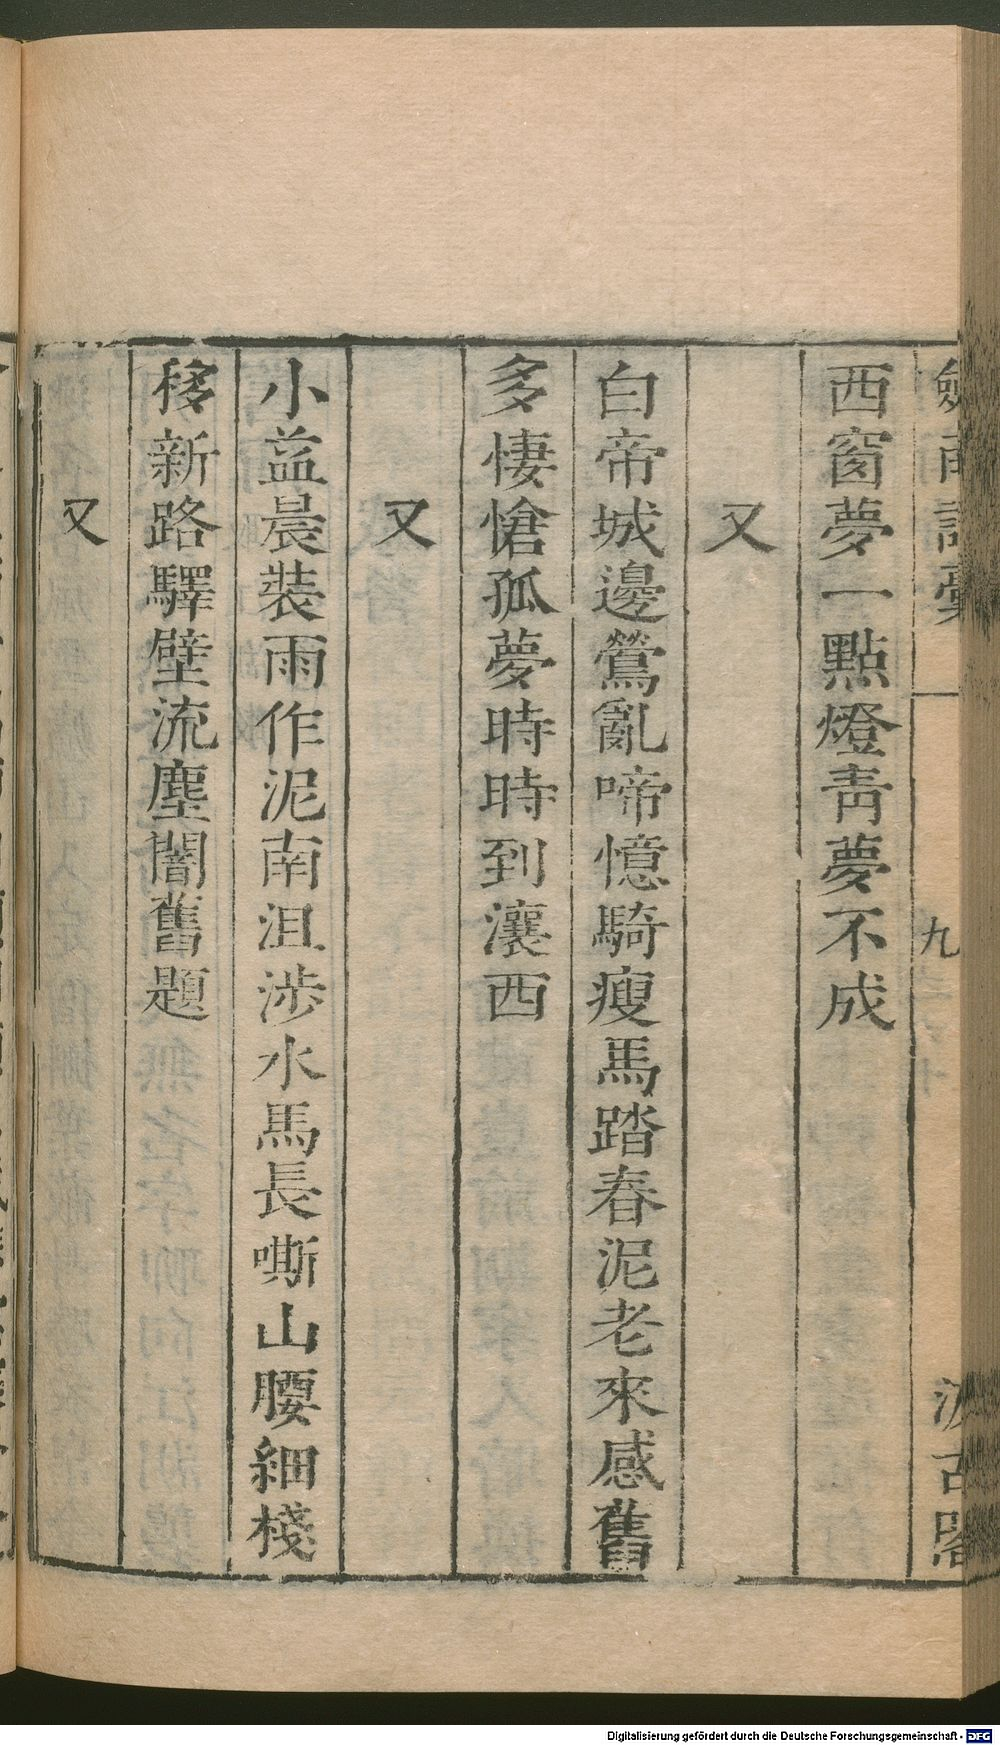 劍南詩稾
九
汲古閣
西窗夢一點燈靑夢不成
又
白帝城邊鶯亂啼憶騎瘦馬踏春泥老來感舊
多悽愴孤夢時時到瀼西
又
小益晨裝雨作泥南沮涉水馬長嘶山腰細棧
移新路驛壁流塵闇舊題
又
Digitalisierung gefördert durch die Deutsche Forschungsgemeinschaft - DFG